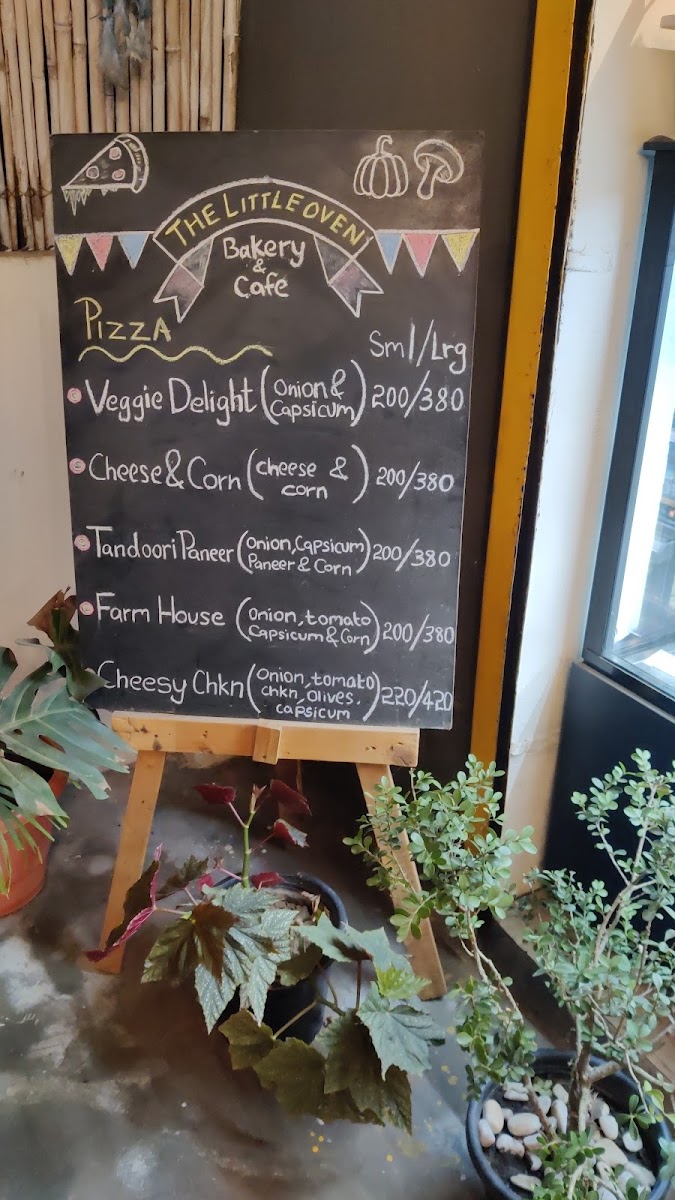 THE LITTLE OVEN
Bakery
&
Café
PIZZA
Sml/Lrg
Veggie Delight (Onion & Capsicum) 200/380
Cheese & Corn (cheese & corn) 200/380
Tandoori Paneer (Onion, Capsicum Paneer & Corn) 200/380
Farm House (Onion, tomato Capsicum & Corn) 200/380
Cheesy Chkn (Onion, tomato chkn, olives, capsicum) 220/420